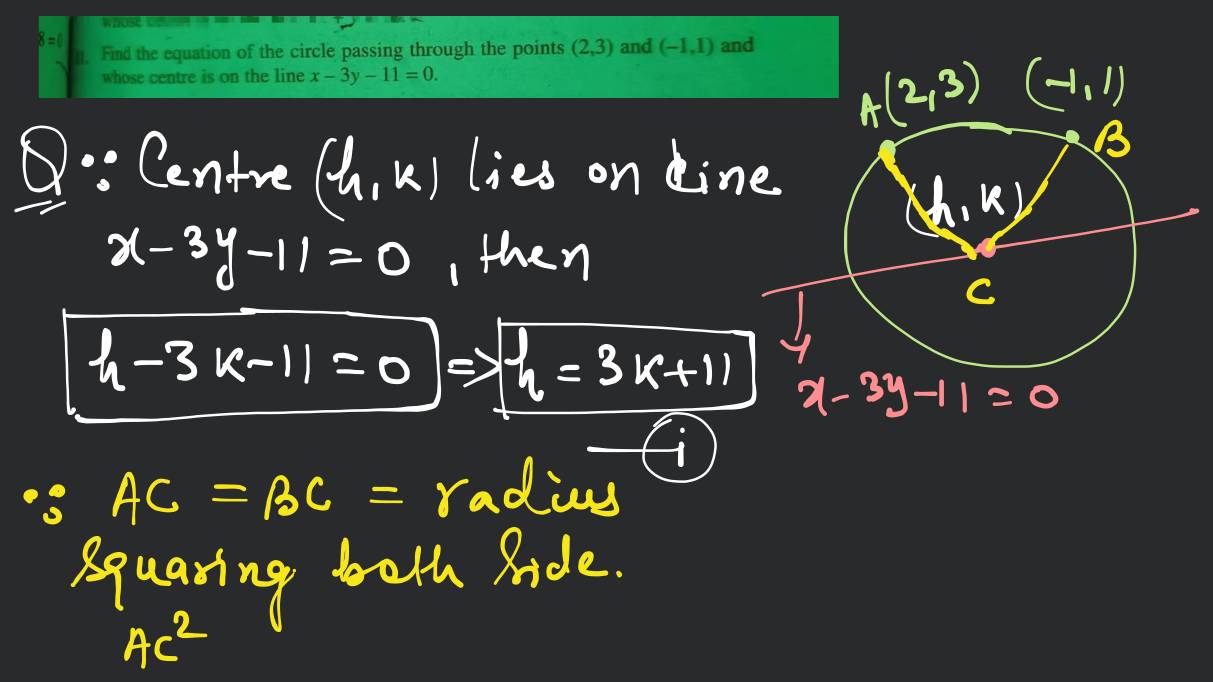 8=0
whose
11. Find the equation of the circle passing through the points (2,3) and (–1,1) and
whose centre is on the line x – 3y – 11 = 0.
Q ∵ Centre (h,k) lies on line
x-3y-11=0, then
h-3k-11=0 => h=3k+11
—(i)
∵ AC = BC = radius
Squaring both side.
AC²
A(2,3) (-1,1)
B
(h,k)
C
x-3y-11=0